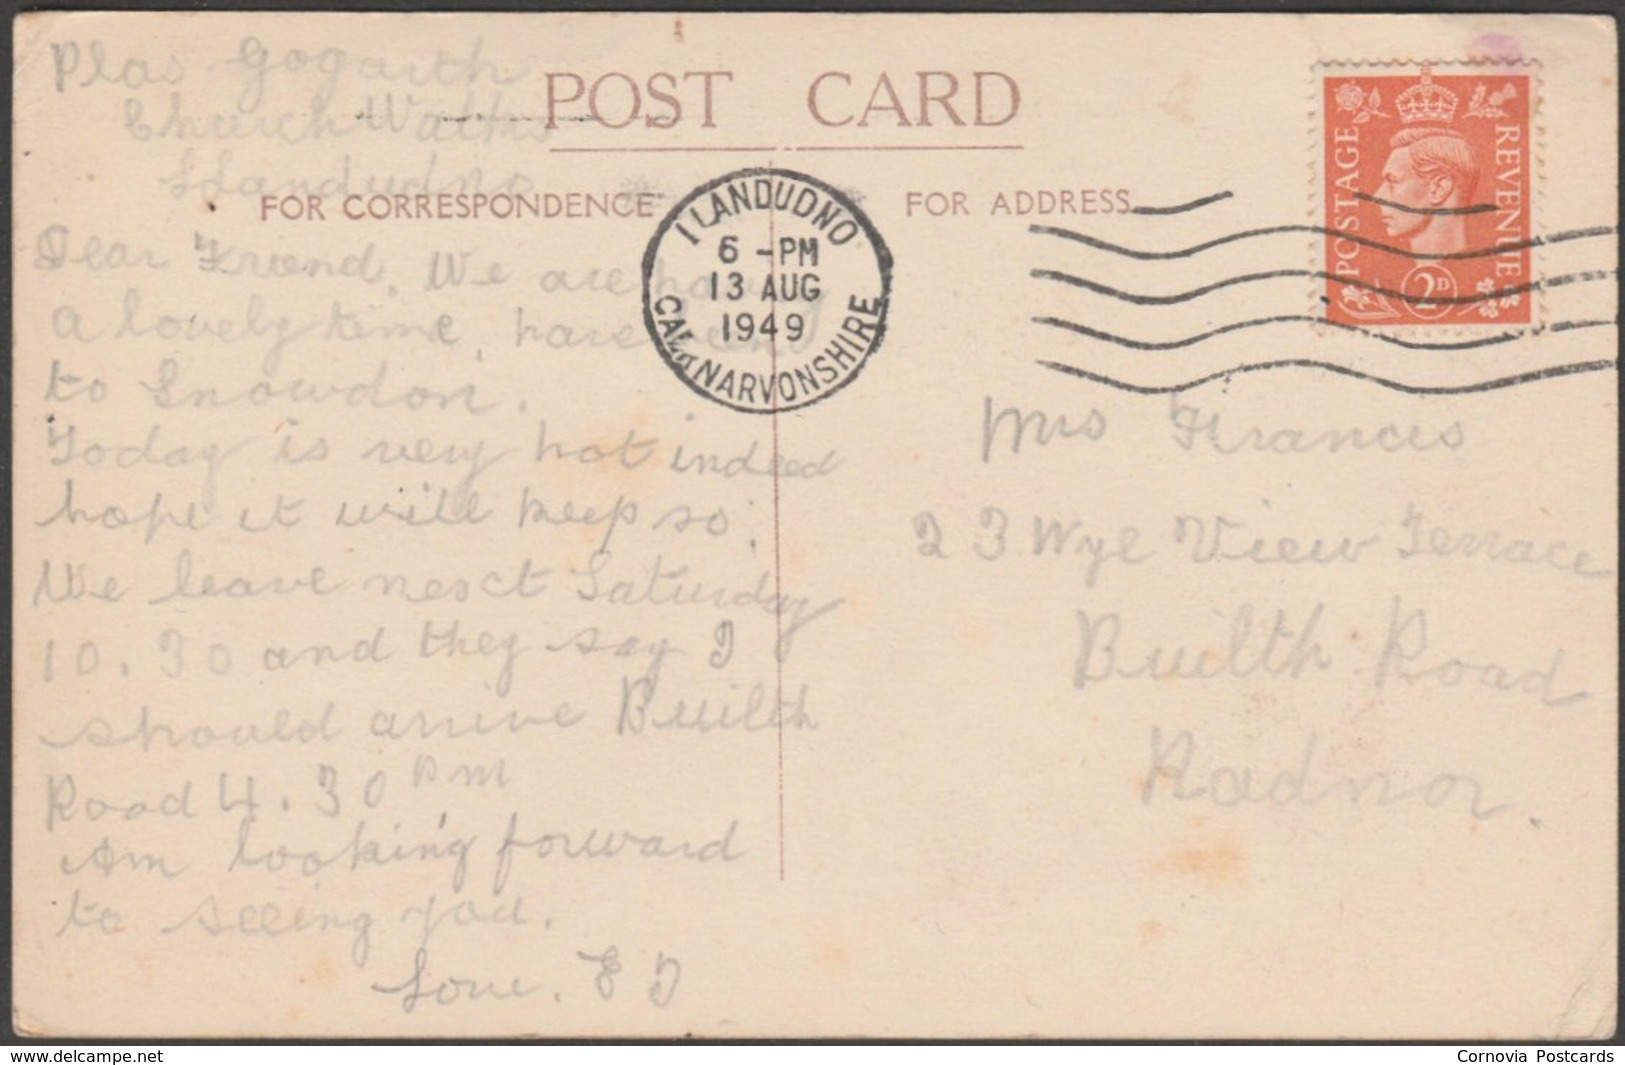 Plas Gogarth
Church Walks
Llandudno
POST CARD
FOR CORRESPONDENCE
FOR ADDRESS
Dear Friend. We are having
a lovely time, have been
to Snowdon.
Today is very hot indeed
hope it will keep so.
We leave next Saturday
10.30 and they say I
should arrive Builth
Road 4.30 pm
Am looking forward
to seeing you.
Love. E J
LLANDUDNO
6 - PM
13 AUG
1949
CAERNARVONSHIRE
POSTAGE
REVENUE
2D
Mrs Francis
23 Wye View Terrace
Builth Road
Radnor.
www.delcampe.net
Cornovia Postcards